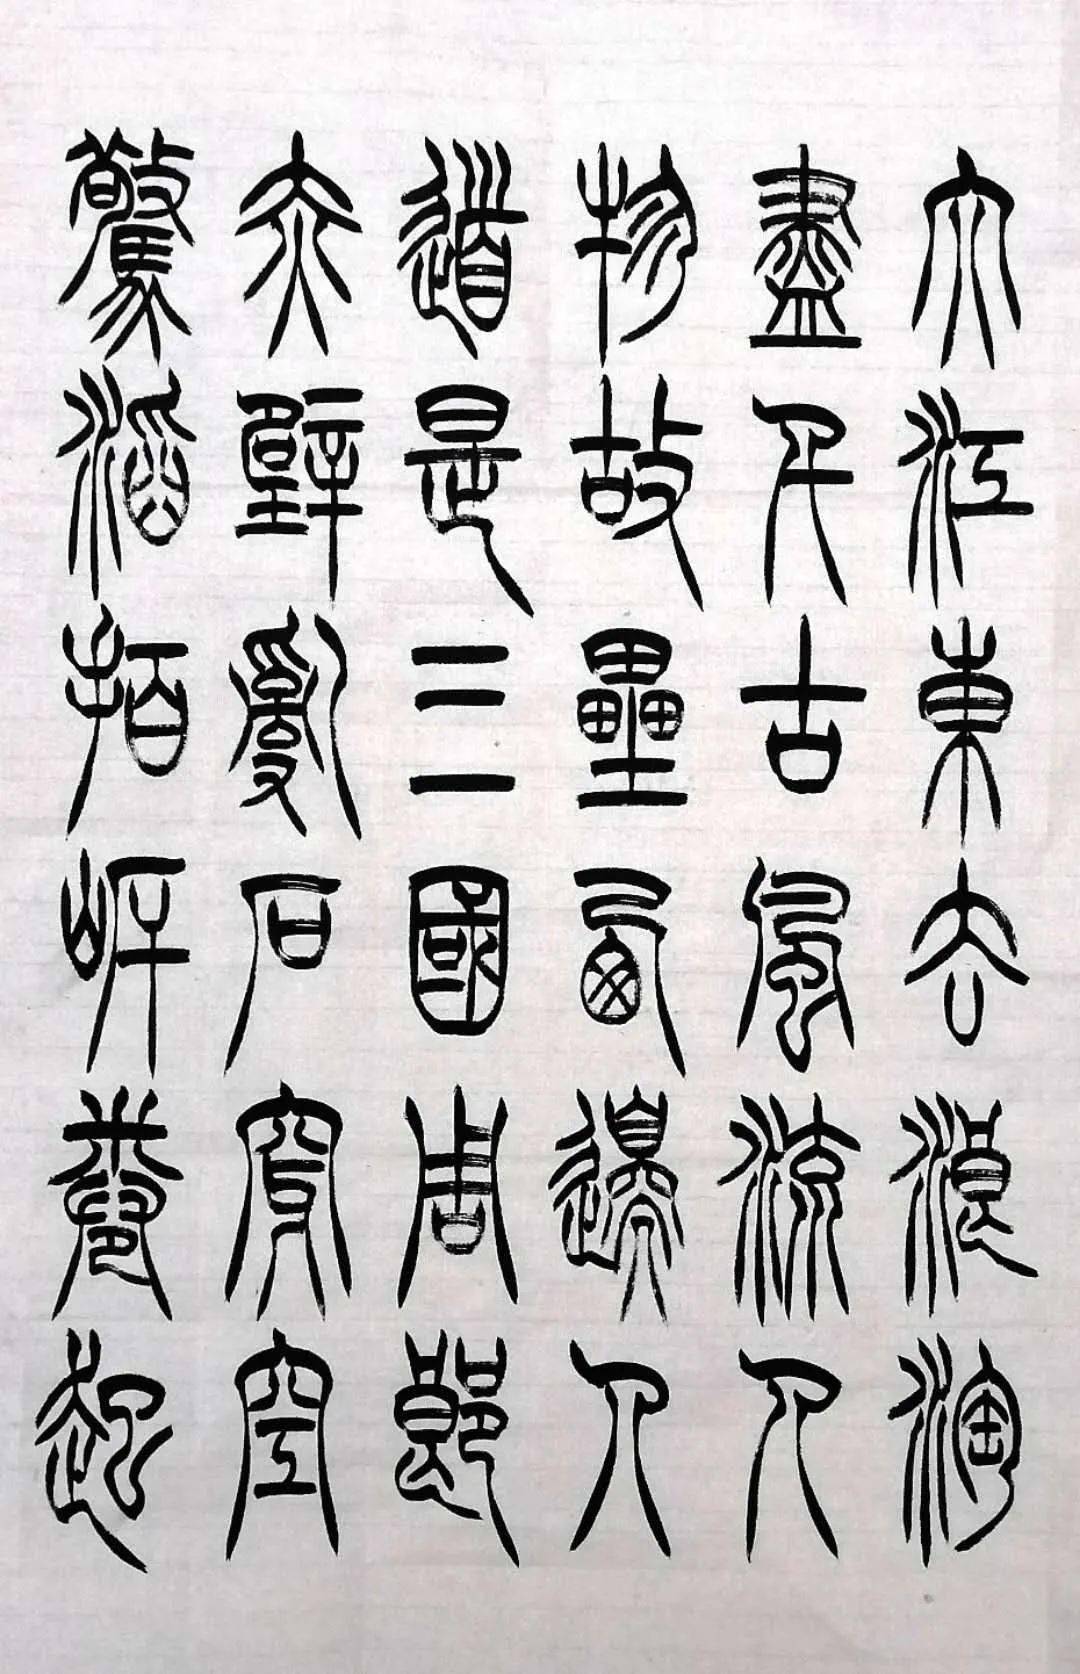 大江東去浪淘
盡千古風流人
物故壘西邊人
道是三國周郎
赤壁亂石穿空
驚滔拍岸卷起